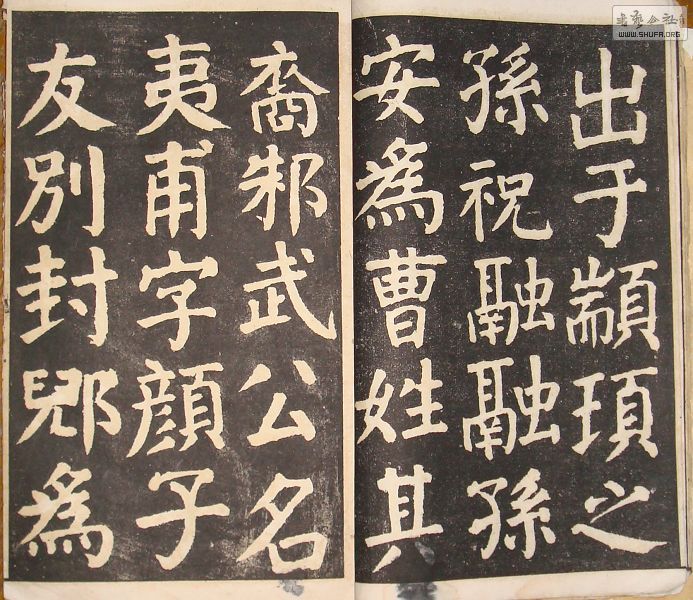 出于顓頊之
孫祝融融孫
安爲曹姓其
裔邾武公名
夷甫字顔子
友別封郳爲
WWW.SHUFA.ORG